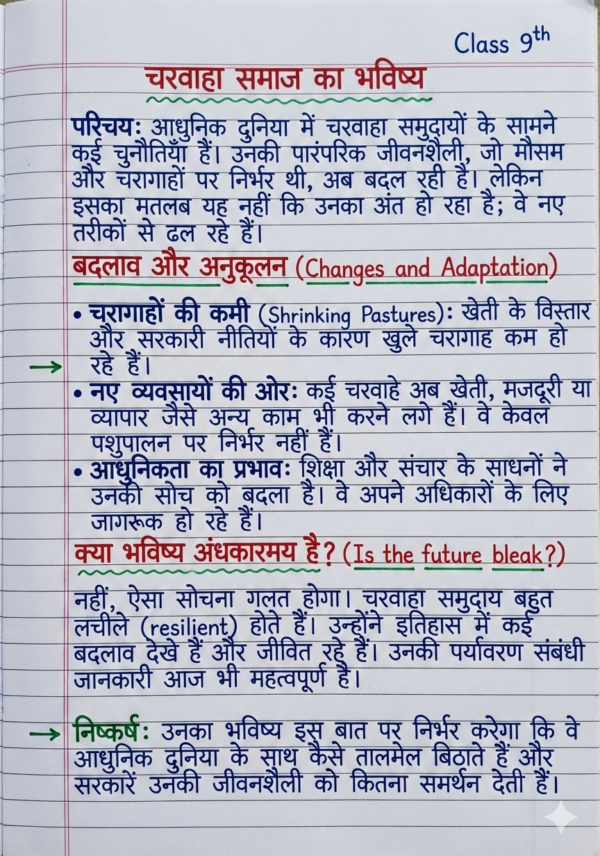 Class 9th
चरवाहा समाज का भविष्य
परिचय: आधुनिक दुनिया में चरवाहा समुदायों के सामने
कई चुनौतियाँ हैं। उनकी पारंपरिक जीवनशैली, जो मौसम
और चरागाहों पर निर्भर थी, अब बदल रही है। लेकिन
इसका मतलब यह नहीं कि उनका अंत हो रहा है; वे नए
तरीकों से ढल रहे हैं।
बदलाव और अनुकूलन (Changes and Adaptation)
• चरागाहों की कमी (Shrinking Pastures): खेती के विस्तार
और सरकारी नीतियों के कारण खुले चरागाह कम हो
→ रहे हैं।
• नए व्यवसायों की ओर: कई चरवाहे अब खेती, मजदूरी या
व्यापार जैसे अन्य काम भी करने लगे हैं। वे केवल
पशुपालन पर निर्भर नहीं हैं।
• आधुनिकता का प्रभाव: शिक्षा और संचार के साधनों ने
उनकी सोच को बदला है। वे अपने अधिकारों के लिए
जागरूक हो रहे हैं।
क्या भविष्य अंधकारमय है? (Is the future bleak?)
नहीं, ऐसा सोचना गलत होगा। चरवाहा समुदाय बहुत
लचीले (resilient) होते हैं। उन्होंने इतिहास में कई
बदलाव देखे हैं और जीवित रहे हैं। उनकी पर्यावरण संबंधी
जानकारी आज भी महत्वपूर्ण है।
→ निष्कर्ष: उनका भविष्य इस बात पर निर्भर करेगा कि वे
आधुनिक दुनिया के साथ कैसे तालमेल बिठाते हैं और
सरकारें उनकी जीवनशैली को कितना समर्थन देती हैं।